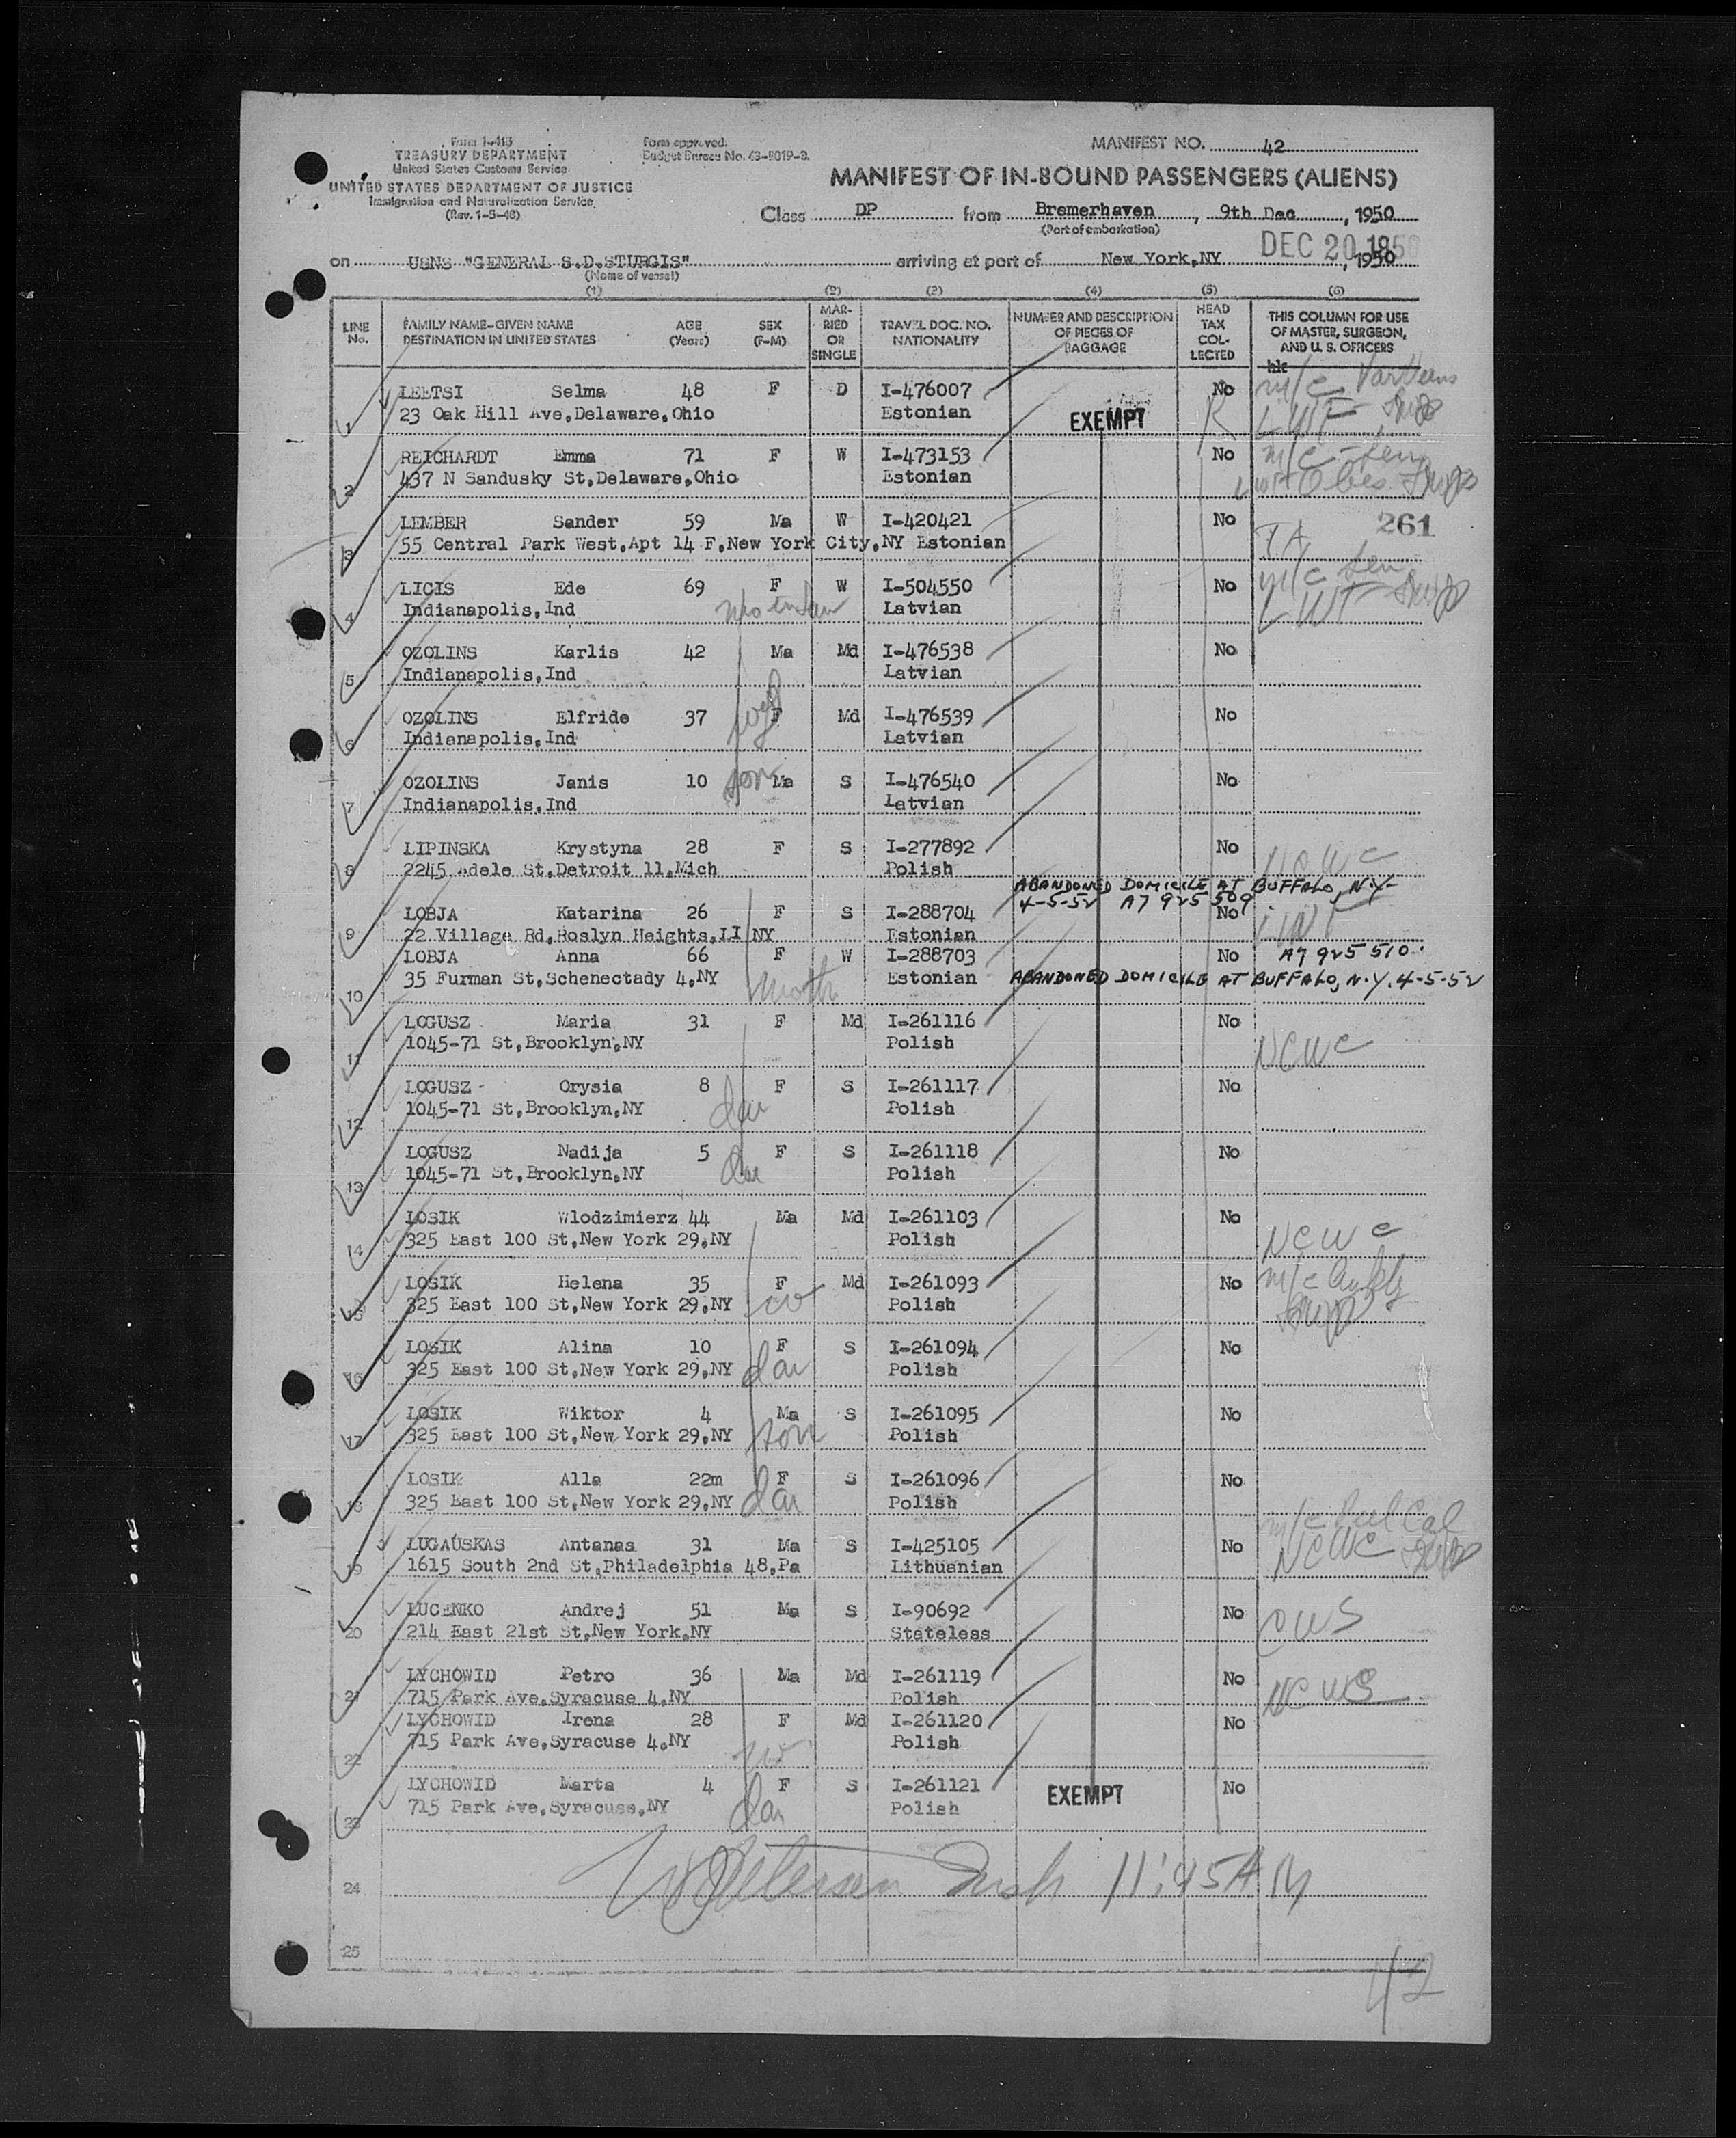 Form I-418
TREASURY DEPARTMENT
United States Customs Service
UNITED STATES DEPARTMENT OF JUSTICE
Immigration and Naturalization Service
(Rev. 1-5-48)
Form approved.
Budget Bureau No. 43-R019-3.
MANIFEST NO. 42
MANIFEST OF IN-BOUND PASSENGERS (ALIENS)
Class DP from Bremerhaven, 9th Dec, 1950
(Port of embarkation)
DEC 20 1950
on USNS "GENERAL S.D.STURGIS" arriving at port of New York,NY, 1950
(Name of vessel)
(1) (2) (3) (4) (5) (6)
LINE No. FAMILY NAME-GIVEN NAME DESTINATION IN UNITED STATES AGE (Years) SEX (F-M) MARRIED OR SINGLE TRAVEL DOC. NO. NATIONALITY NUMBER AND DESCRIPTION OF PIECES OF BAGGAGE HEAD TAX COLLECTED THIS COLUMN FOR USE OF MASTER, SURGEON, AND U. S. OFFICERS
1 LEETSI Selma 48 F D I-476007 No m/c
23 Oak Hill Ave,Delaware,Ohio Estonian EXEMPT LWF
2 REICHARDT Emma 71 F W I-473153 No m/c
437 N Sandusky St,Delaware,Ohio Estonian
3 LEMBER Sander 59 Ma W I-420421 No 261
55 Central Park West,Apt 14 F,New York City,NY Estonian
4 LICIS Ede 69 F W I-504550 No m/c Sen
Indianapolis,Ind Latvian LWF
5 OZOLINS Karlis 42 Ma Md I-476538 No
Indianapolis,Ind Latvian
6 OZOLINS Elfride 37 F Md I-476539 No
Indianapolis,Ind Latvian
7 OZOLINS Janis 10 son Ma S I-476540 No
Indianapolis,Ind Latvian
8 LIPINSKA Krystyna 28 F S I-277892 No NCWC
2245 Adele St,Detroit 11,Mich Polish
ABANDONED DOMICILE AT BUFFALO, N.Y-
4-5-52 A7 925 509
9 LOBJA Katarina 26 F S I-288704 No
22 Village Rd,Roslyn Heights,LI NY Estonian
10 LOBJA Anna 66 F W I-288703 No A7 925 510
35 Furman St,Schenectady 4,NY moth Estonian ABANDONED DOMICILE AT BUFFALO, N.Y. 4-5-52
11 LOGUSZ Maria 31 F Md I-261116 No
1045-71 St,Brooklyn,NY Polish NCWC
12 LOGUSZ Orysia 8 F S I-261117 No
1045-71 St,Brooklyn,NY dau Polish
13 LOGUSZ Nadija 5 F S I-261118 No
1045-71 St,Brooklyn,NY dau Polish
14 LOSIK Wlodzimierz 44 Ma Md I-261103 No
325 East 100 St,New York 29,NY Polish NCWC
15 LOSIK Helena 35 F Md I-261093 No m/c
325 East 100 St,New York 29,NY w Polish
16 LOSIK Alina 10 F S I-261094 No
325 East 100 St,New York 29,NY dau Polish
17 LOSIK Wiktor 4 Ma S I-261095 No
325 East 100 St,New York 29,NY son Polish
18 LOSIK Alla 22m F S I-261096 No
325 East 100 St,New York 29,NY dau Polish
19 LUGAUSKAS Antanas 31 Ma S I-425105 No
1615 South 2nd St,Philadelphia 48,Pa Lithuanian NCWC
20 LUCENKO Andrej 51 Ma S I-90692 No CWS
214 East 21st St,New York,NY Stateless
21 LYCHOWID Petro 36 Ma Md I-261119 No
715 Park Ave,Syracuse 4,NY Polish
22 LYCHOWID Irena 28 F Md I-261120 No
715 Park Ave,Syracuse 4,NY w Polish
23 LYCHOWID Marta 4 F S I-261121 EXEMPT No
715 Park Ave,Syracuse,NY dau Polish
24 11:45 AM
25
42